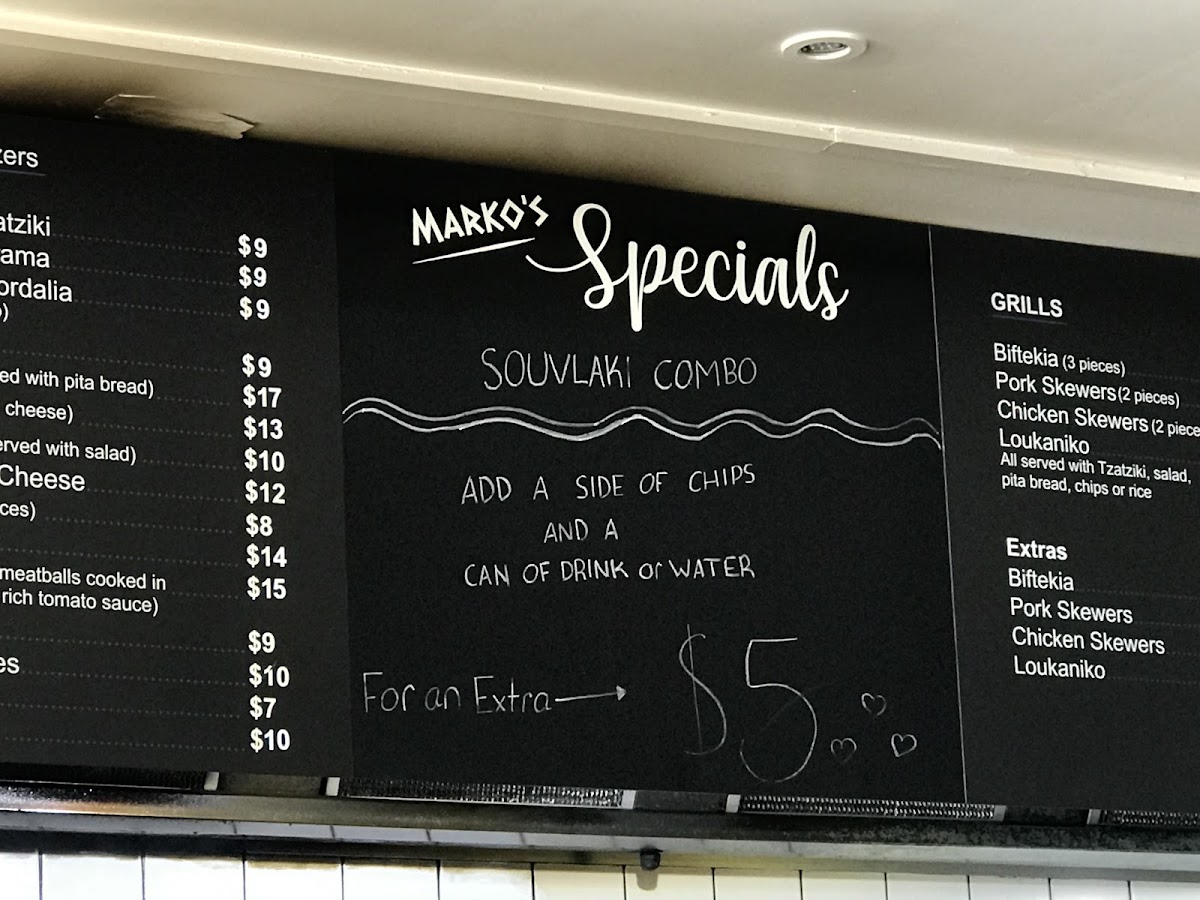 $9
$9
$9
$9
ed with pita bread) $17
cheese) $13
erved with salad) $10
Cheese $12
$8
$14
meatballs cooked in $15
rich tomato sauce)
$9
$10
$7
$10
MARKO'S Specials
SOUVLAKI COMBO
ADD A SIDE OF CHIPS
AND A
CAN OF DRINK or WATER
For an Extra → $5
GRILLS
Biftekia (3 pieces)
Pork Skewers (2 pieces)
Chicken Skewers (2 piece
Loukaniko
All served with Tzatziki, salad,
pita bread, chips or rice
Extras
Biftekia
Pork Skewers
Chicken Skewers
Loukaniko